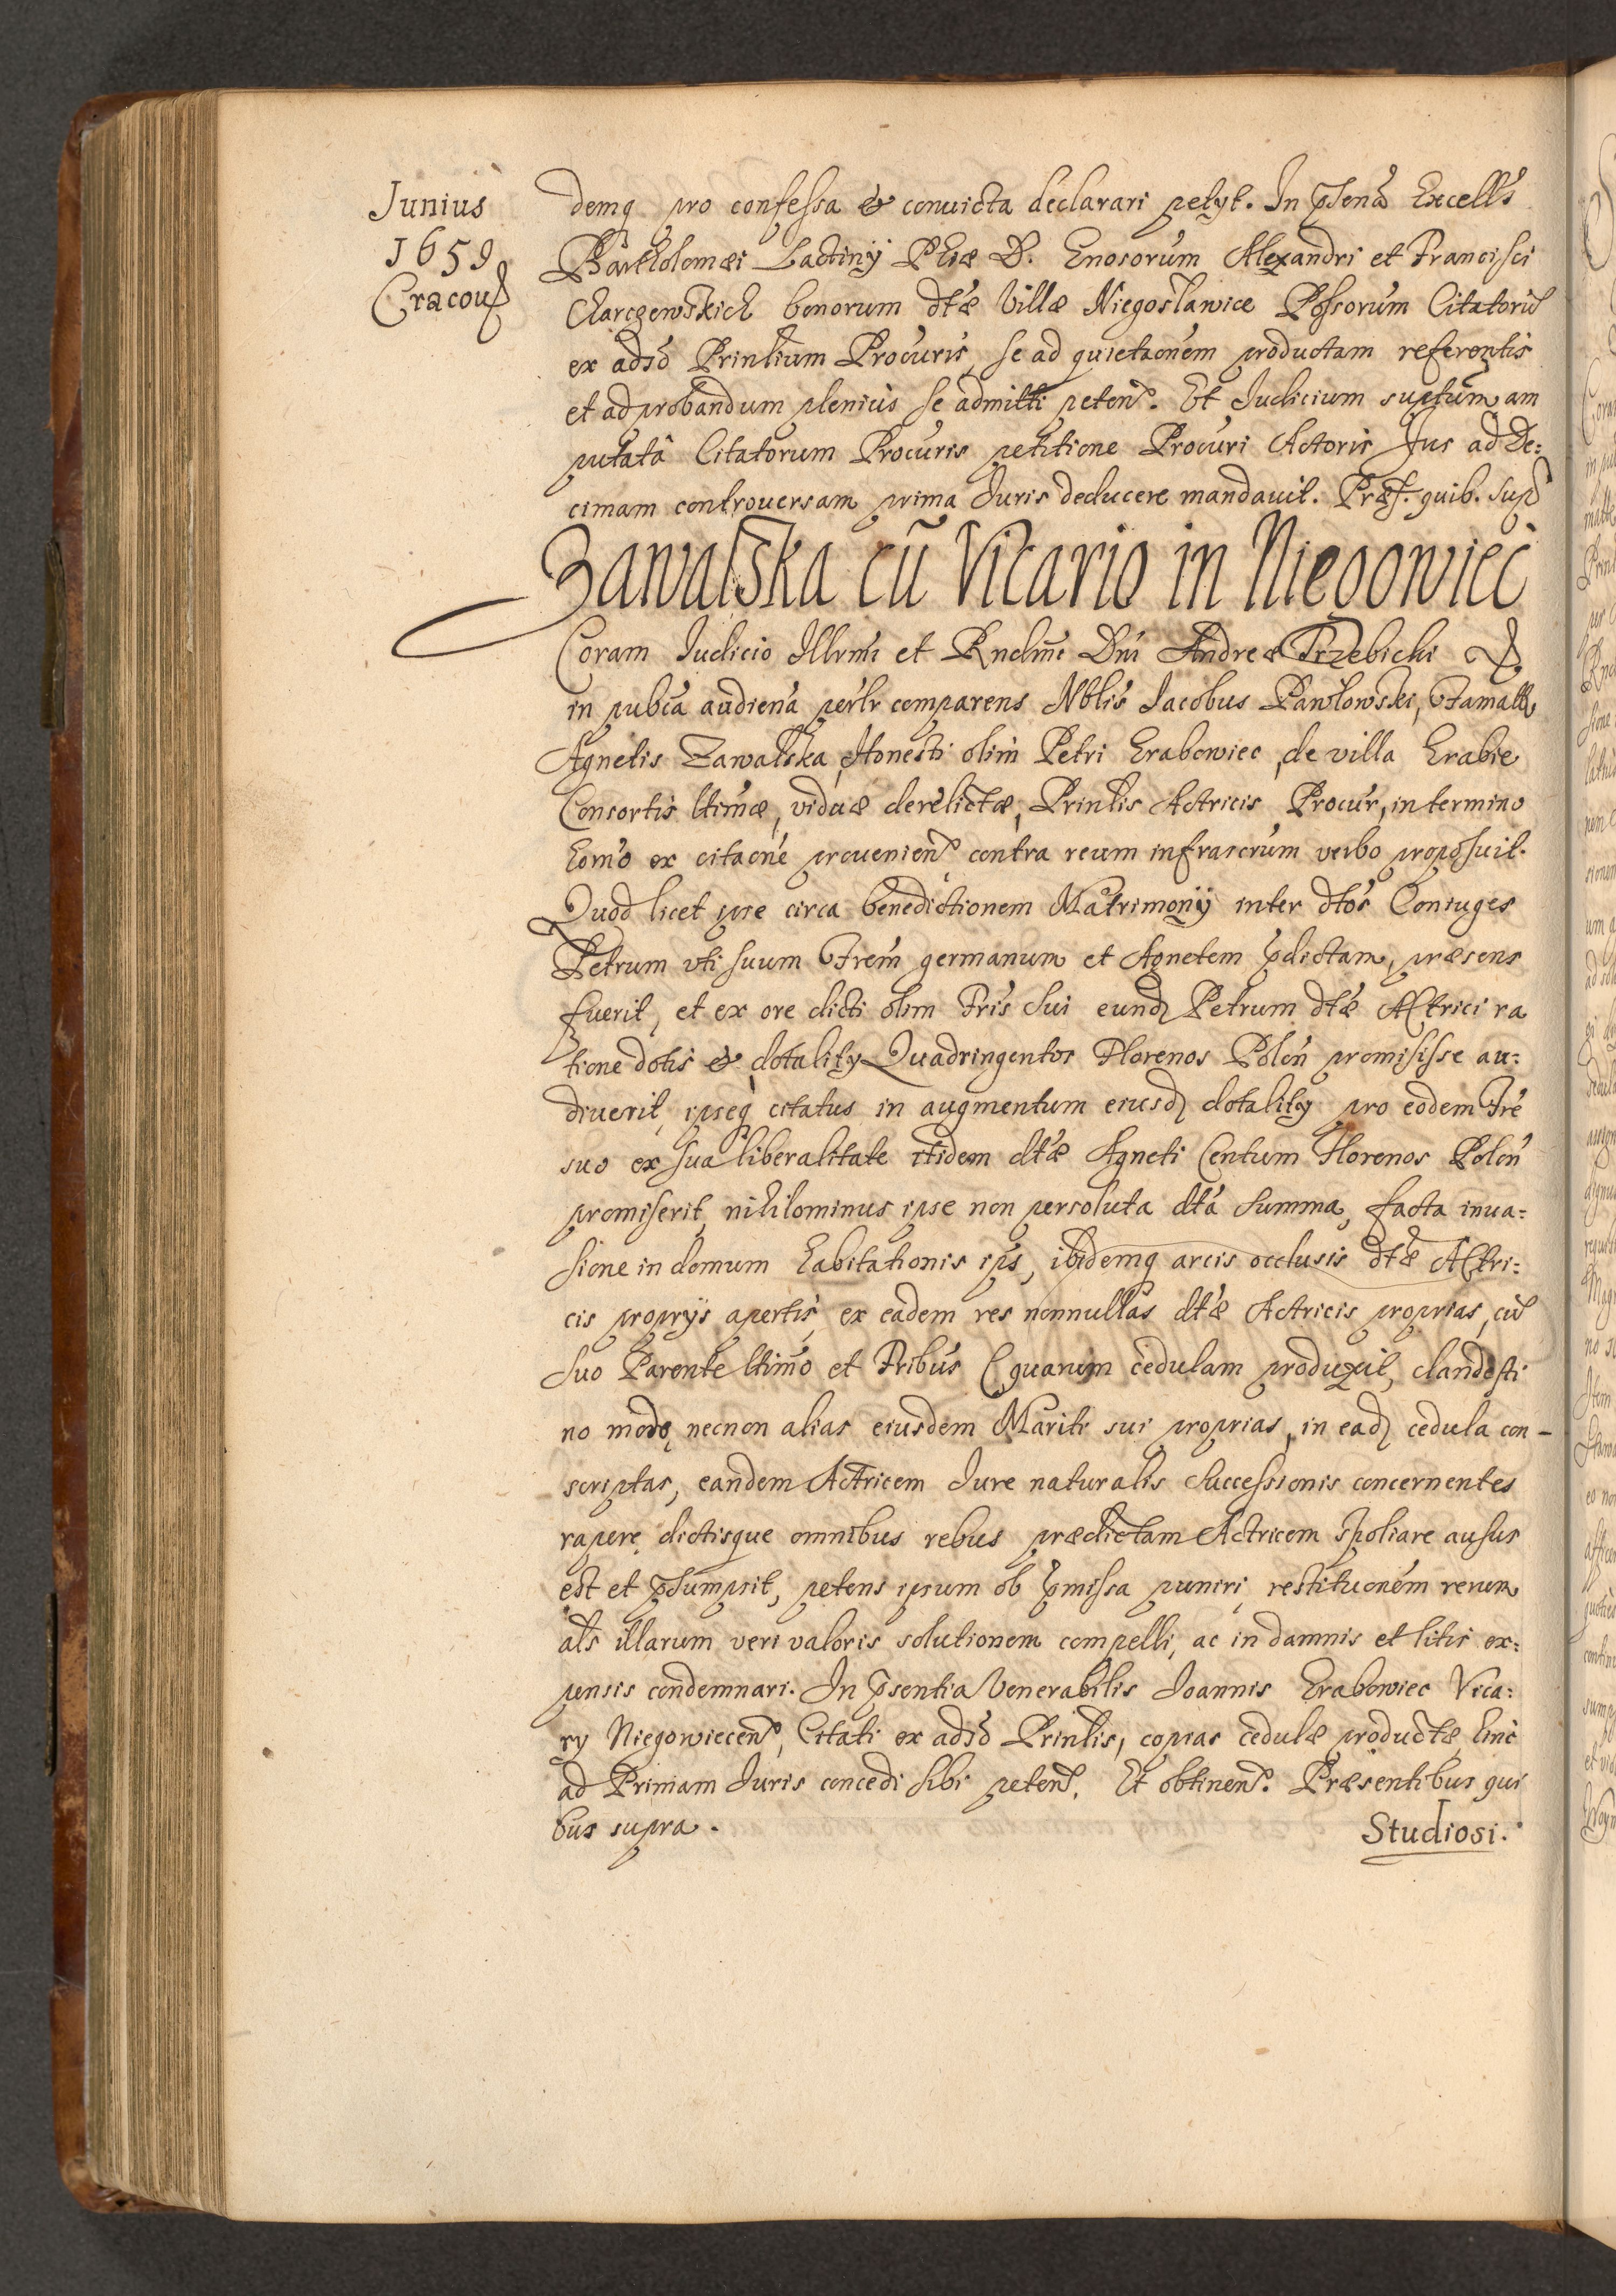 Junius
1659
Cracou
demq pro confessa & conuicta declarari petyt. In pñtena Excellis
Bartholomæi Lactiny Phiæ D. Gnosorum Alexandri et Francisci
Charczewskich bonorum dtæ Villæ Niegosławice Possorum Citatorū
ex adso Prinlium Procuris, se ad quietaonem productam referentis
et ad probandum plenius se admitti peten. Et Iudicium suptum am
putata Citatorum Procuris petitione Procuri Actoris Jus ad De:
cimam controuersam prima Juris deducere mandauit. Præs. quib. sup
Zawalska cū Vicario in Niegowiec
Coram Iudicio Illrmi et Rndmi Dni Andreæ Trzebicki &
in pubca audiena perlr comparens Nblis Iacobus Pawłowski, Famatæ
Agnetis Zawalska, Honesti olim Petri Grabowiec, de villa Grabie
Consortis ltimæ, viduæ derelictæ, Prinlis Actricis Procur, in termino
homo ex citaone prouenien contra reum infrascrum verbo proposuit.
Quod licet ipse circa benedictionem Matrimonÿ inter dtos Coniuges
Petrum vti suum Frem germanum et Agnetem pdictam, præsens
fuerit, et ex ore dicti olim Fris sui eund Petrum dtæ Actrici ra
tione dotis & dotality Quadringentos Florenos Polon promisisse au:
diuerit, ipseq citatus in augmentum eiusd dotality pro eodem Fre
suo ex sua liberalitate itidem dtæ Agneti Centum Florenos Polon
promiserit, nihilominus ipse non persoluta dta summa, facta inua:
sione in domum habitationis ips, ibidemq arcis occlusis dtæ Actri:
cis proprÿs apertis, ex eadem res nonnullas dtæ Actricis proprias, cū
suo Parente ltimo et Fribus (quarum cedulam produxit, clandesti
no modo, necnon alias eiusdem Mariti sui proprias, in ead cedula con-
scriptas, eandem Actricem Iure naturalis successionis concernentes
rapere dictisque omnibus rebus prædictam Actricem spoliare ausus
est et psumpsit, petens ipsum ob pmissa puniri, restituonem rerum
als illarum veri valoris solutionem compelli, ac in damnis et litis ex:
pensis condemnari. In psentia Venerabilis Ioannis Grabowiec Vica:
ry Niegowiecen, Citati ex adso Prinlis, copias cedulæ productæ hinc
ad Primam Iuris concedi sibi peten. Et obtinen. Præsentibus qui
bus supra.
Studiosi.